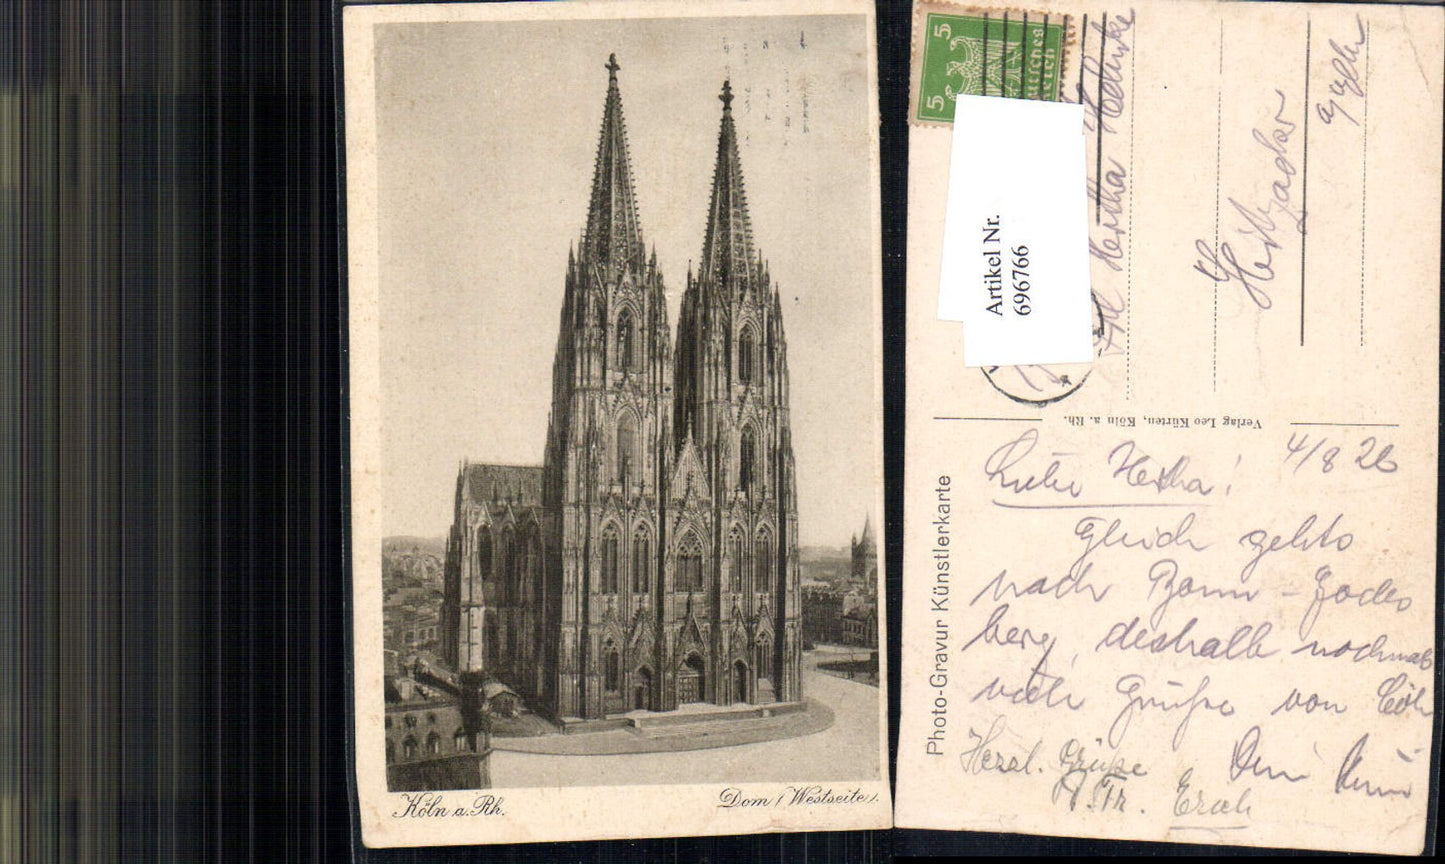 Köln a. Rh.
Dom (Westseite).
5
5
Deutsches
Reich
Artikel Nr.
696766
Hertha
Verlag Leo Kürten, Köln a. Rh.
Photo-Gravur Künstlerkarte
4/8 26
Liebe Hertha!
Gleich gehts
nach Bonn - Godes
berg, deshalb nochmals
viele Grüße von Cöln
Herzl. Grüße Dein
Erich